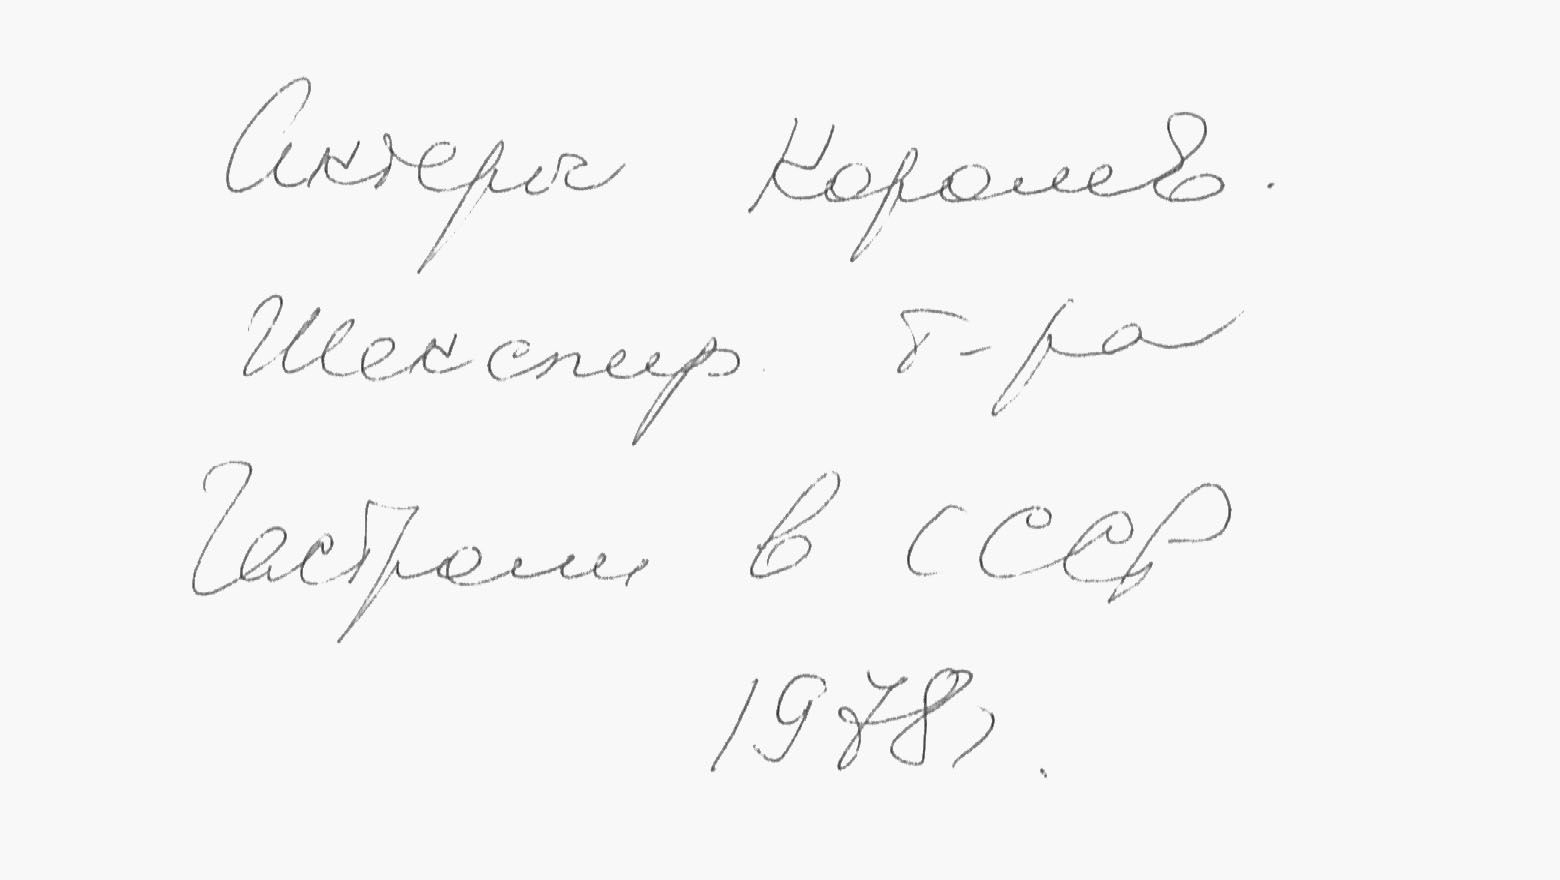 Актеры Королев.
Шекспир. т-ра
Гастроли в СССР
1978г.